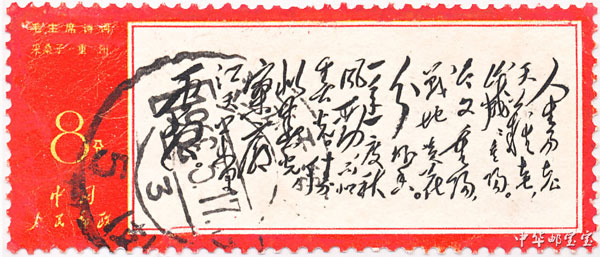 毛主席诗词
采桑子 重阳
8分
中国
人民邮政
人生易老
天難老，
歲歲重陽。
今又重陽，
戰地黄花
分外香。
一年一度秋
風勁，不似
春光。
勝似春光，
寥廓
江天万里霜。
毛泽东
中华邮宝宝